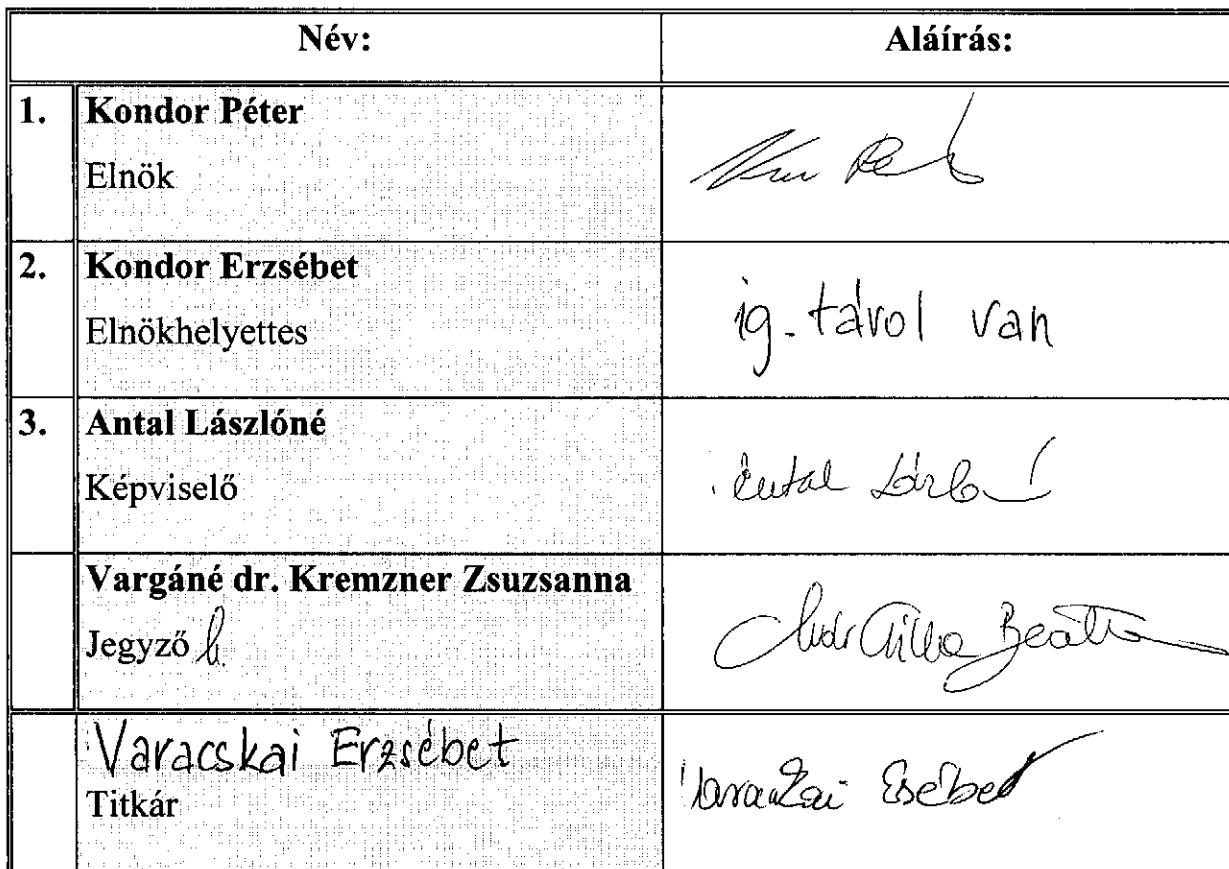 Név: Aláírás:
1. Kondor Péter
Elnök
2. Kondor Erzsébet
Elnökhelyettes
ig. távol van
3. Antal Lászlóné
Képviselő
Antal Lászlóné
Vargáné dr. Kremzner Zsuzsanna
Jegyző h.
Beáta
Varacskai Erzsébet
Titkár
Varacskai Erzsébet